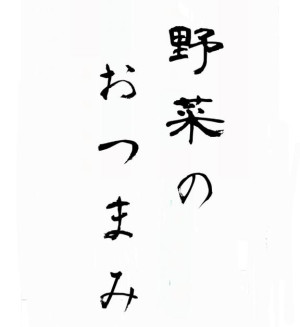 野菜の
おつまみ